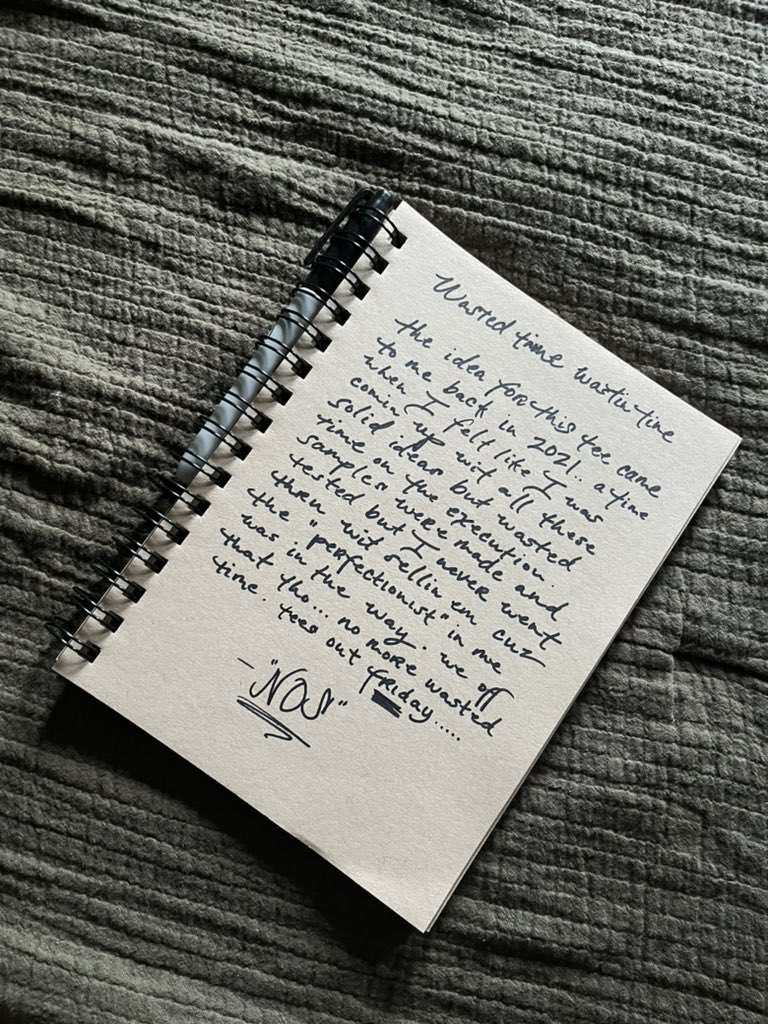 Wasted time wastin time
the idea for this tee came
to me back in 2021.. a time
when I felt like I was
comin up wit all these
solid ideas but wasted
time on the execution.
samples were made and
tested but I never went
thru wit sellin em cuz
the "perfectionist" in me
was in the way. we off
that tho... no more wasted
time. tees out FRIday.....
- "NOS"